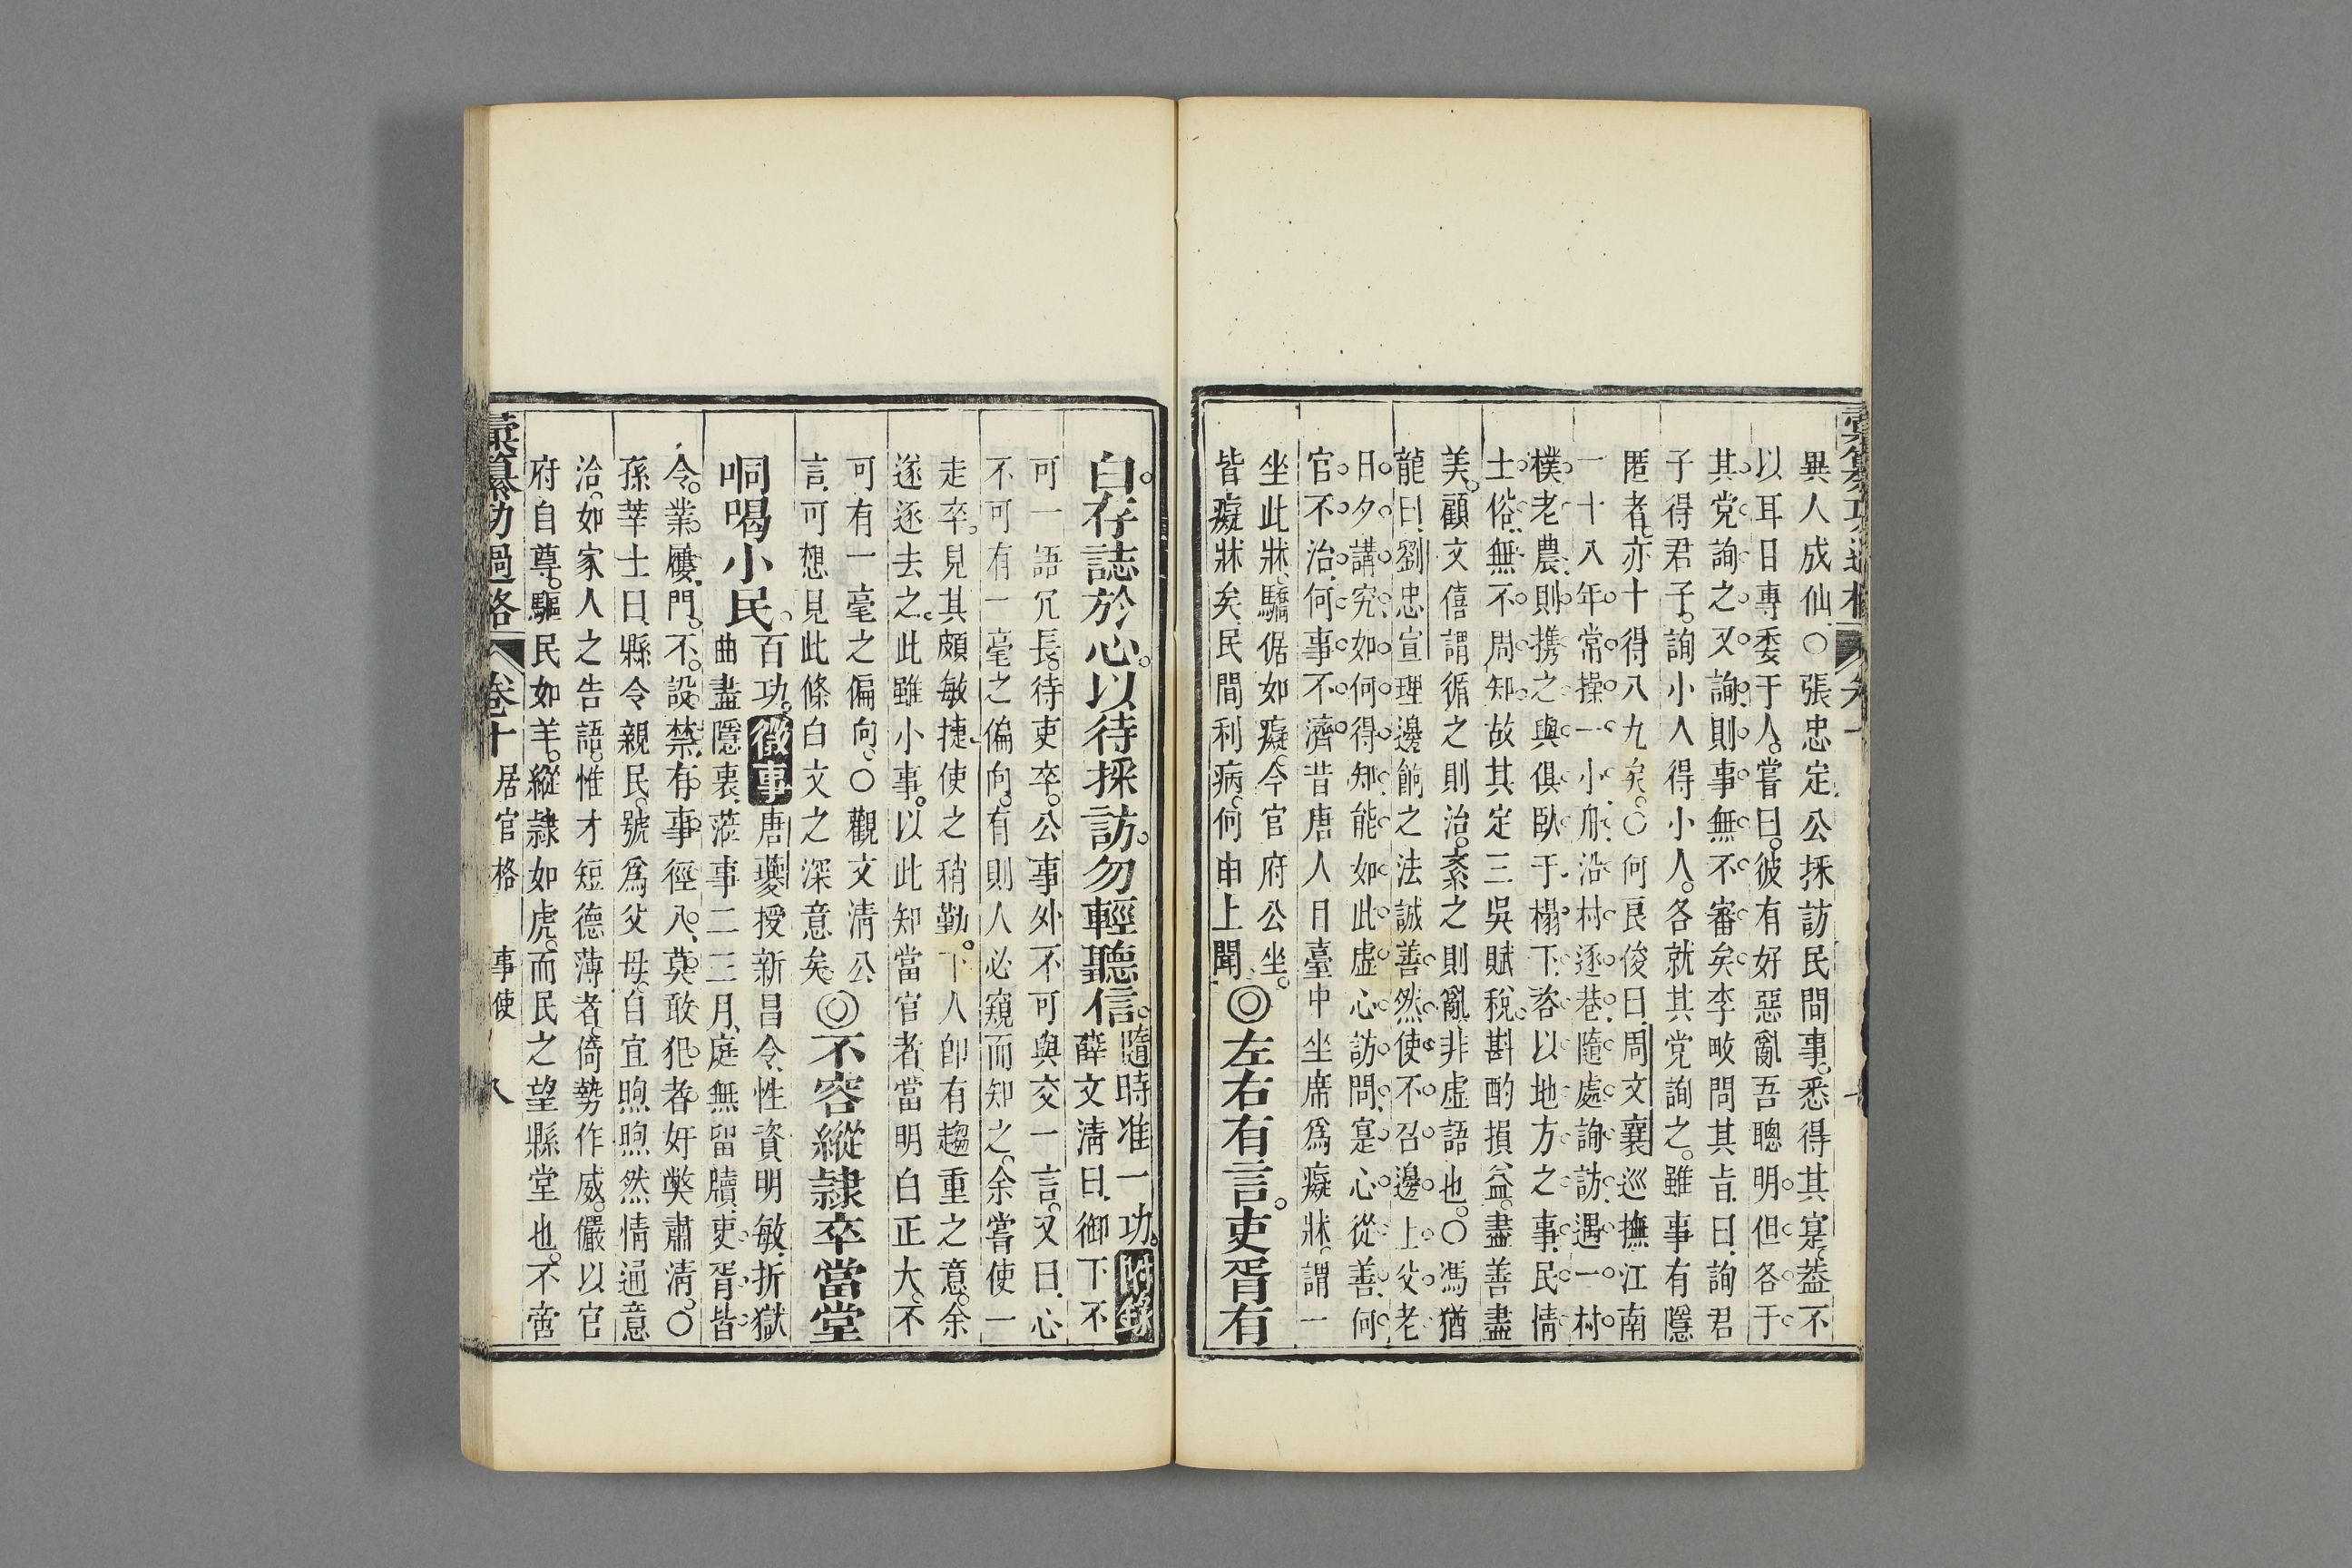 異人成仙○張忠定公採訪民間事。悉得其寔。葢不
以耳目專委于人。嘗曰。彼有好惡亂吾聰明。但各于
其党詢之。又詢。則事無不審矣。李畋問其旨。曰。詢君
子得君子。詢小人得小人。各就其党詢之。雖事有隱
匿者。亦十得八九矣。○何良俊曰。周文襄巡撫江南
一十八年。常操一小舟。沿村逐巷。隨處詢訪。遇一村
樸老農。則携之與俱臥于榻下。咨以地方之事。民情
土俗。無不周知。故其定三吳賦稅。斟酌損益。盡善盡
美。顧文僖謂循之則治。紊之則亂。非虛語也。○馮猶
龍曰。劉忠宣理邊餉之法誠善。然使不召邊上父老
日夕講究。如何得知。能如此虛心訪問。寔心從善。何
官不治。何事不濟。昔唐人目臺中坐席爲癡牀。謂一
坐此牀。驕倨如癡。今官府公坐。
皆癡牀矣。民間利病。何由上聞。◎左右有言。吏胥有
白。存誌於心。以待採訪。勿輕聽信。隨時准一功。附錄
薛文清曰。御下不
可一語冗長。待吏卒。公事外不可與交一言。又曰。心
不可有一毫之偏向。有則人必窺而知之。余嘗使一
走卒。見其頗敏捷。使之稍勤。下人卽有趨重之意。余
遂逐去之。此雖小事。以此知當官者。當明白正大。不
可有一毫之偏向。○觀文清公
言。可想見此條白文之深意矣。◎不容縱隷卒當堂
哃喝小民。百功。徵事唐夔授新昌令。性資明敏。折獄
曲盡隱衷。蒞事二三月。庭無留牘。吏胥皆
令。業屨。門。不。設。禁。有事徑入。莫敢犯者。奸弊肅清。○
孫莘士曰。縣令親民。號爲父母。自宜煦煦然情通意
洽。如家人之告語。惟才短德薄者。倚勢作威。儼以官
府自尊。驅民如羊。縱隷如虎。而民之望縣堂也。不啻
彙纂功過格 卷十 居官格 事使 八